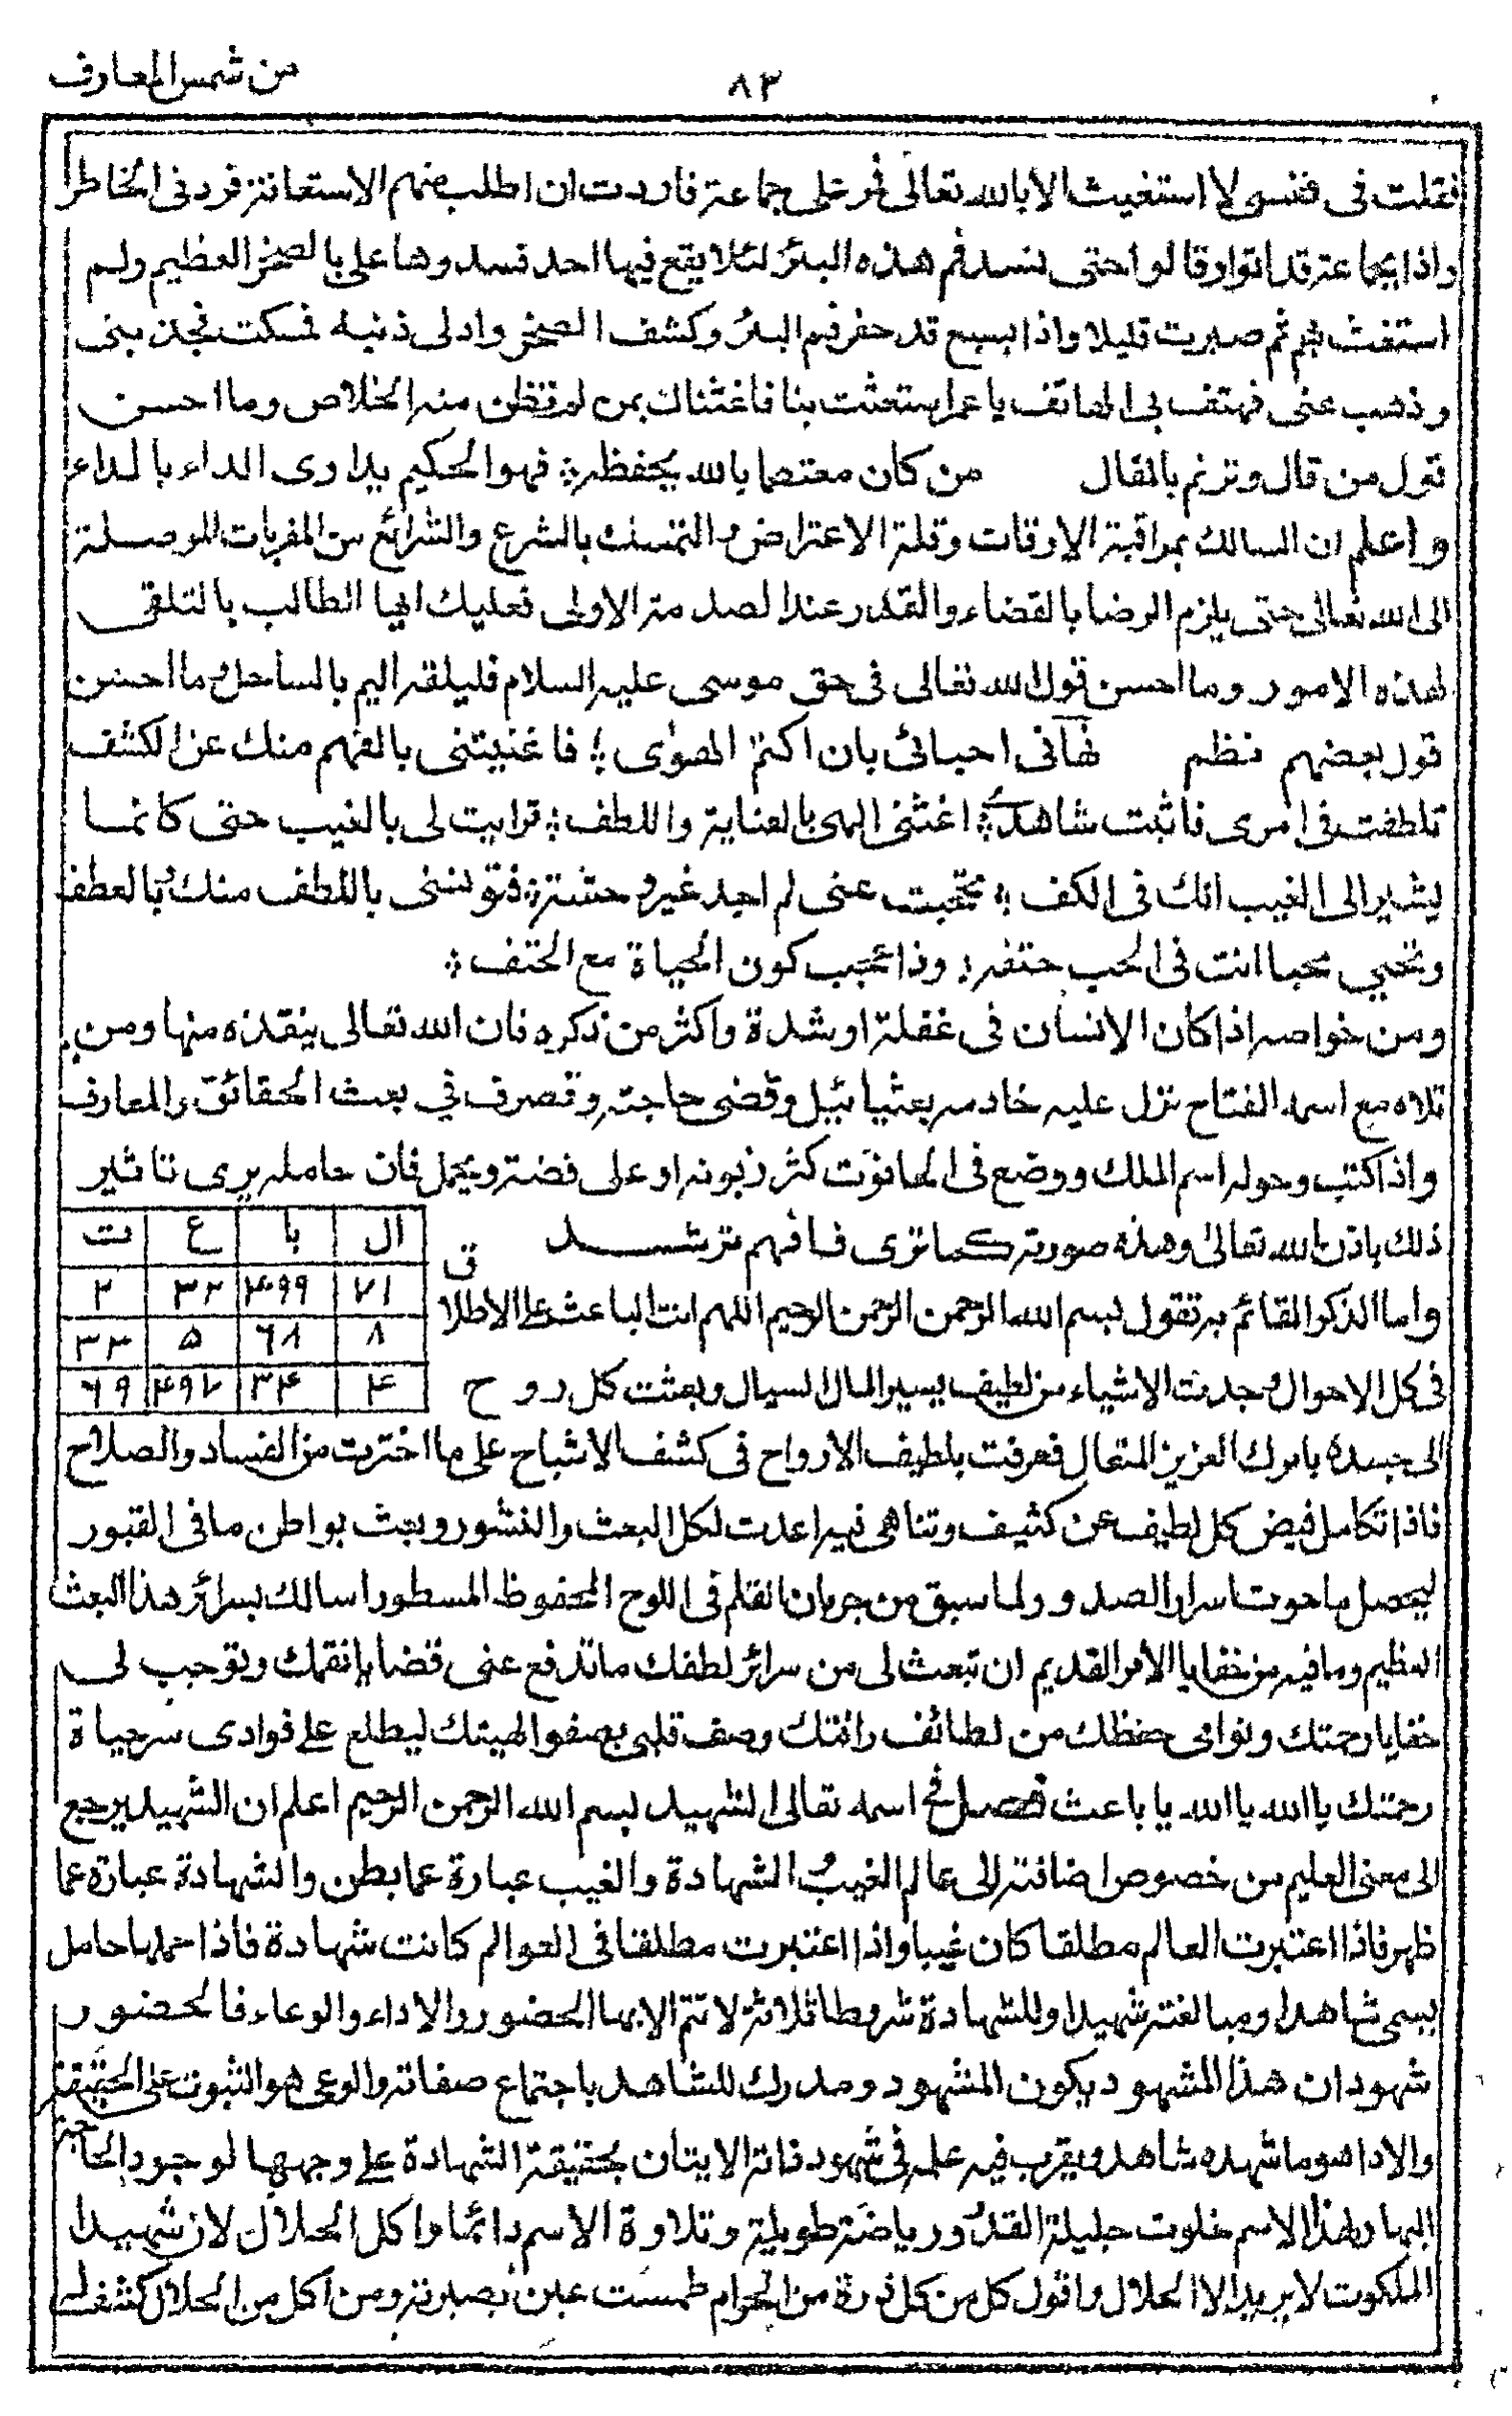 من شمس المعارف
٨٣
فقلت فى نفسى لا استغيث الا بالله تعالى فمر على جماعة فاردت ان اطلب منهم الاستعانة فرد فى الخاطر
واذا بجماعة قد اتوا وقالوا حتى نسد فم هذه البئر لئلا يقع فيها احد فسدوها على بالصخر العظيم ولم
استغث بهم ثم صبرت قليلا واذا بسبع قد حفر فم البئر وكشف الصخر وادلى ذنبه فمسكت فجذبنى
وذهب عنى فهتف بى الهاتف يا عمر استغثت بنا فاغثناك بمن لم تظن منه الخلاص وما احسن
قول من قال وترنم بالمقال من كان معتصما بالله يحفظه ؛ فهو الحكيم يداوى الداء بالداء
واعلم ان السالك بمراقبة الاوقات وقلة الاعتراض والتمسك بالشرع والشرائع من المقربات الموصلة
الى الله تعالى حتى يلزم الرضا بالقضاء والقدر عند الصدمة الاولى فعليك ايها الطالب بالتلقى
لهذه الامور وما احسن قول الله تعالى فى حق موسى عليه السلام فليلقه اليم بالساحل وما احسن
قول بعضهم نظم نهانى احبائى بان اكتم الهوى ؛ فاغنيتنى بالفهم منك عن الكشف
تلطفت فى امرى فاثبت شاهدى ؛ اغثنى الهى بالعناية واللطف ؛ ترايت لى بالغيب حتى كانما
يشير الى الغيب انك فى الكف ؛ تحجبت عنى لم اجد غير وحشة ؛ فتونسنى باللطف منك بالعطف
وتحيي محبا انت فى الحب حتفه ؛ وذا عجب كون الحياة مع الحتف ؛
ومن خواصه اذا كان الانسان فى غفلة او شدة واكثر من ذكره فان الله تعالى ينقذه منها ومن
تلاه مع اسمه الفتاح نزل عليه خادمه بعثيائيل وقضى حاجته وتصرف في بعث الحقائق والمعارف
واذا كتب وحوله اسم الملك ووضع فى الحانوت كثر زبونه او على فضة ويحمل فان حامله يرى تاثير
ذلك باذن الله تعالى وهذه صورته كما ترى فافهم ترشد
ال با ع ث
٧١ ۴٩٩ ٣٢ ٢
٨ ٦٨ ۵ ٣٣
۴ ٣۴ ۴٩٧ ٦٩
واما الذكر القائم به تقول بسم الله الرحمن الرحمن الرحيم اللهم انت الباعث على الاطلاق
فى كل الاحوال وجدت الاشياء من لطيف يسير المال السيال وبعثت كل روح
الى جسده بامرك العزيز المتعال فعرفت بلطيف الارواح فى كشف الاشباح على ما اخترت من الفساد والصلاح
فاذا تكامل فيض كل لطيف عن كثيف وتناهى فيه اعدت لكل البعث والنشور وبعث بواطن ما فى القبور
ليحصل ما حوت اسرار الصدور ولما سبق من جريان القلم فى اللوح المحفوظ المسطور اسالك بسرائر هذا البعث
العظيم وما فيه من خفايا الامر القديم ان تبعث لى من سرائر لطفك ما تدفع عنى قضايا نقمك وتوجب لى
خفايا رحمتك ونوامى حفظك من لطائف رافتك وصف قلبى بصفو الهيتك ليطلع على فوادى سر حياة
رحمتك يا الله يا الله يا باعث فصل فى اسمه تعالى الشهيد بسم الله الرحمن الرحيم اعلم ان الشهيد يرجع
الى معنى العليم من خصوص اضافته الى عالم الغيب والشهادة والغيب عبارة عما بطن والشهادة عبارة عما
ظهر فاذا اعتبرت العالم مطلقا كان غيبا واذا اعتبرت مطلقا فى العوالم كانت شهادة فاذا حملها حامل
يسمى شاهدا ومبالغته شهيدا وللشهادة شروطا ثلاثة لا تتم الا بها الحضور والاداء والوعاء فالحضور
شهود ان هذا المشهود يكون المشهود ومدرك للشاهد باجتماع صفاته والوعى هو الثبوت على الحقيقة
والادا هو ما شهده شاهد ويقرب فيه علمه فى شهود فاتة الاتيان بحقيقة الشهادة على وجهها لوجود الحاجة
اليها ولهذا الاسم خلوت جليلة القدر ورياضة طويلة وتلاوة الاسم دائما واكل الحلال لان شهيدا
الملكوت لا يريد الا الحلال واقول كل من كل ذرة من الحرام طمست عين بصيرته ومن اكل من الحلال كشف له